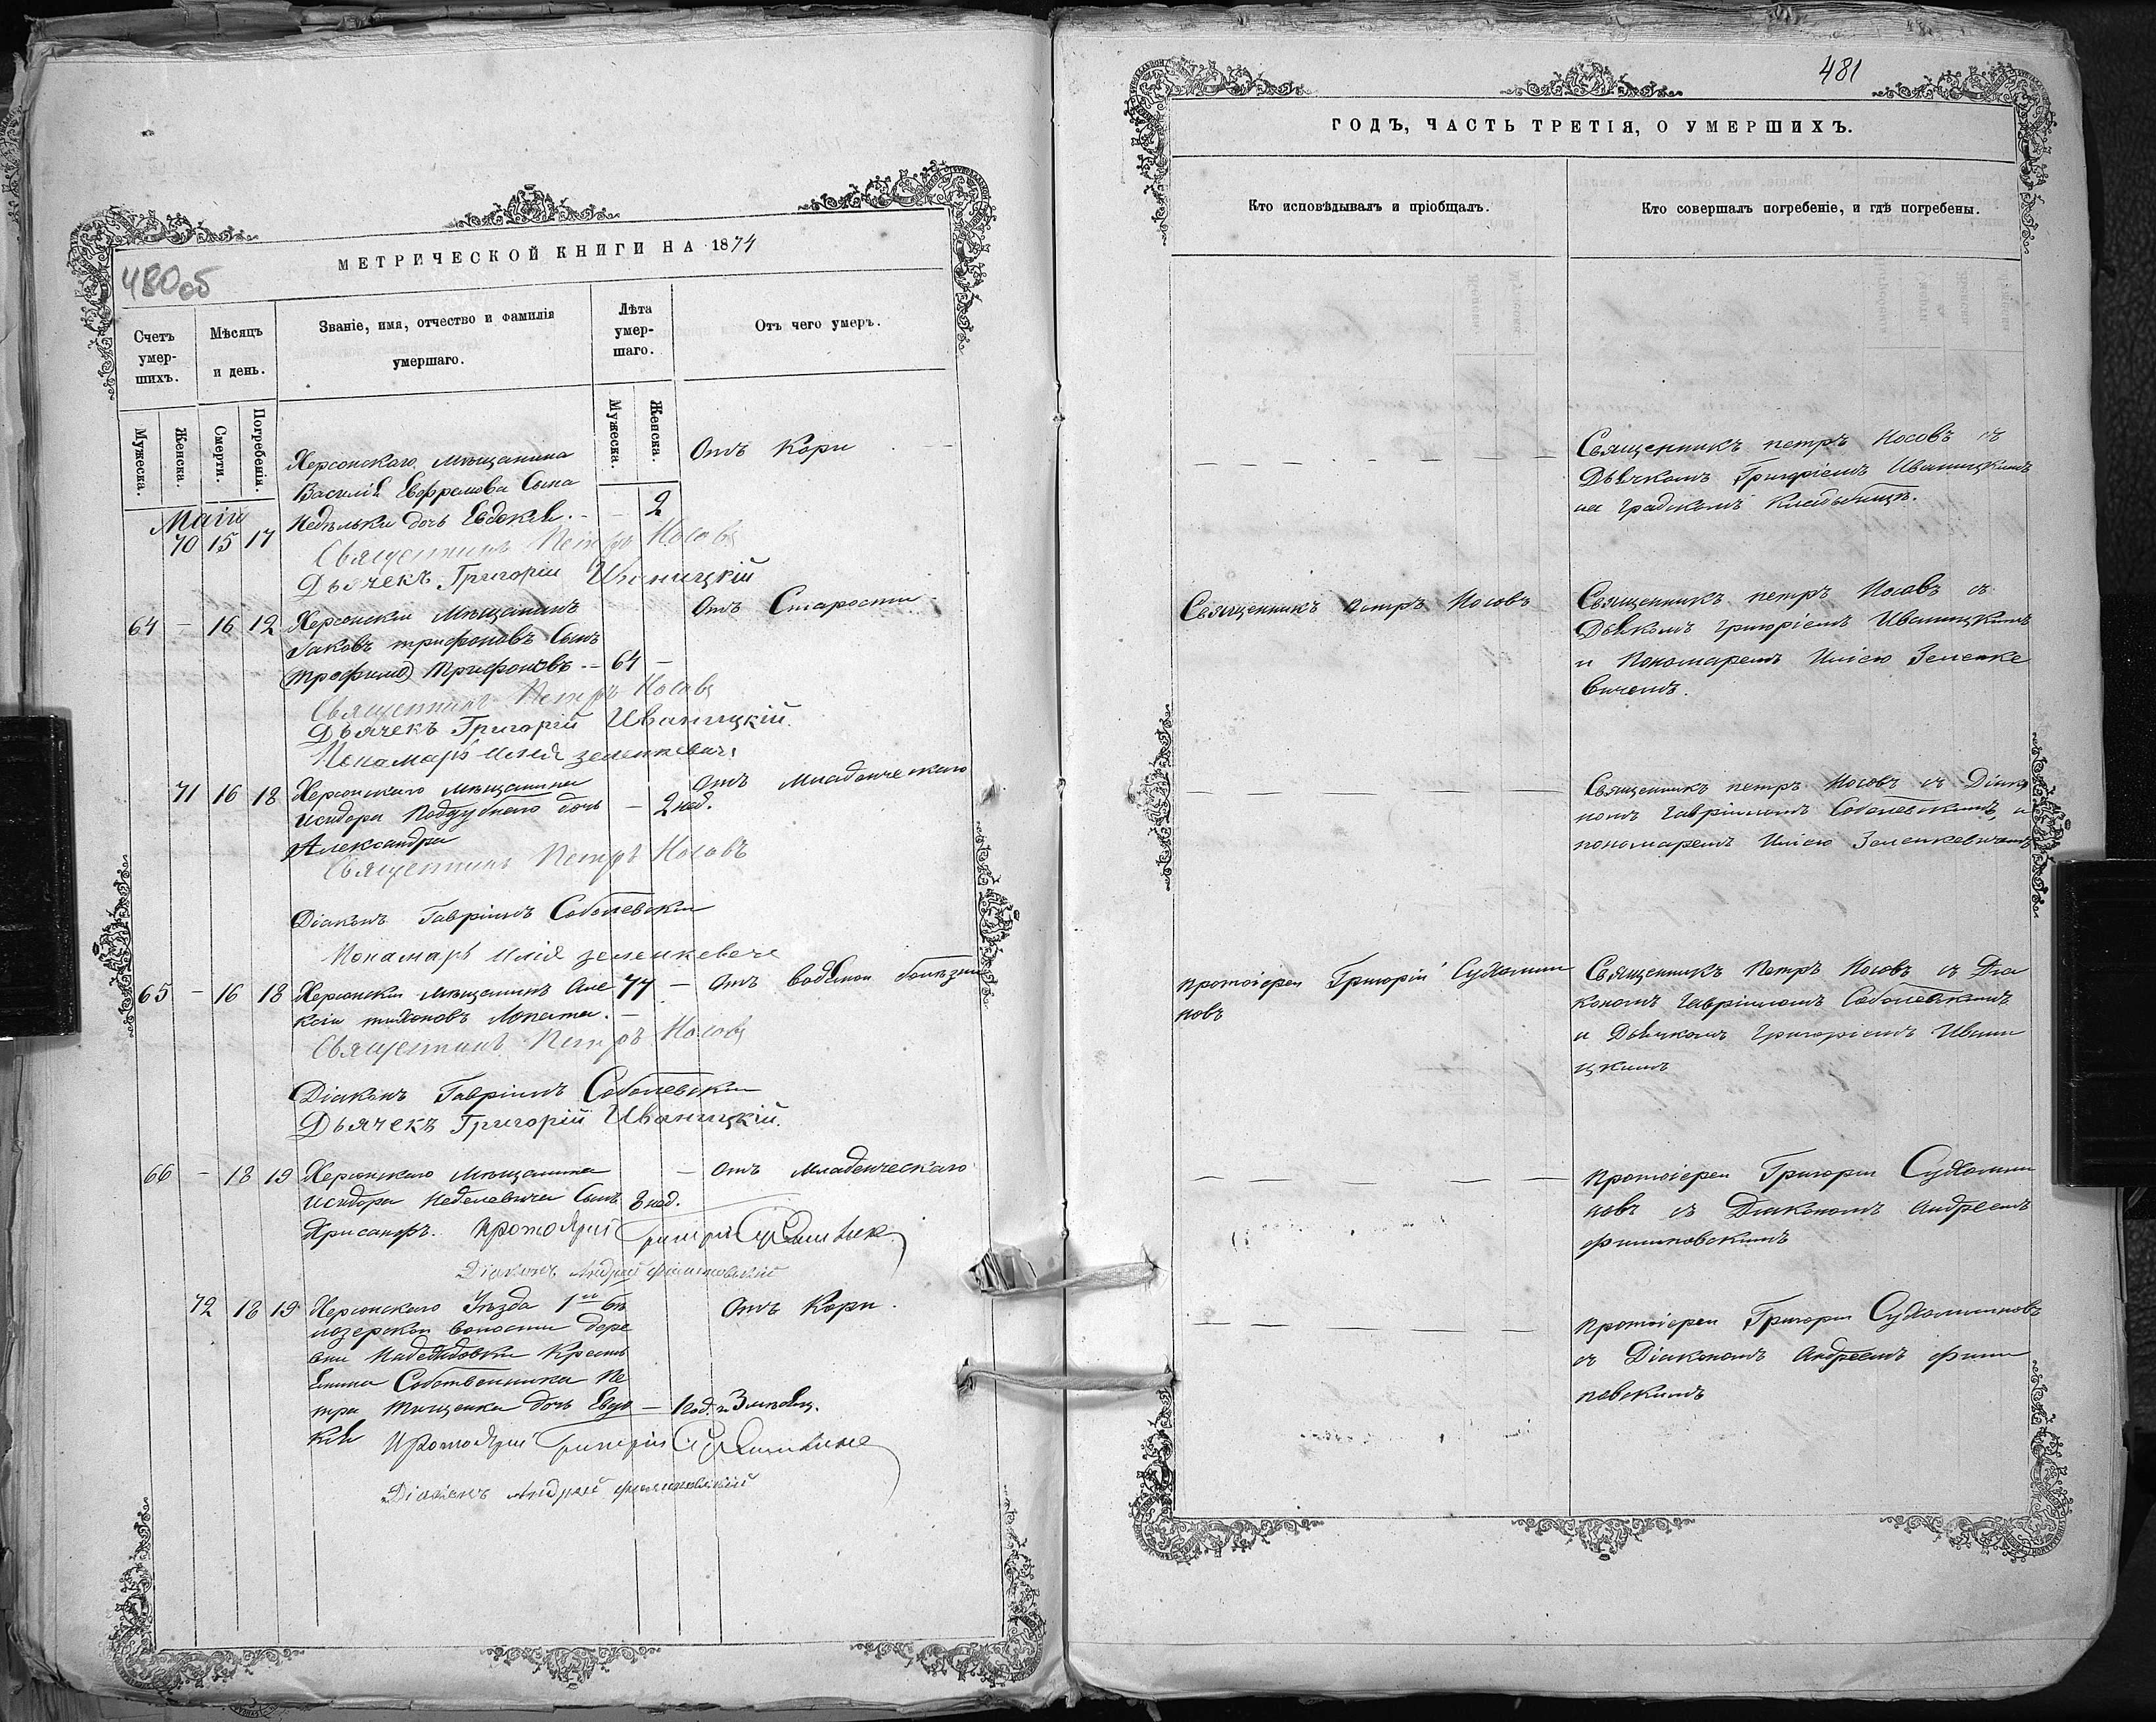 480об
МЕТРИЧЕСКОЙ КНИГИ НА 1874
Счетъ умер-шихъ.
Мѣсяцъ и день.
Званіе, имя, отчество и фамилія умершаго.
Лѣта умер-шаго.
Отъ чего умеръ.
Мужеска.
Женска.
Смерти.
Погребенія.
Мужеска.
Женска.
Маія
70 15 17
Херсонскаго мѣщанина
Василія Евфремова Сына
Недѣльки дочь Евдокія. - - 2
Отъ Кори
Священникъ Петръ Носовъ
Дьячекъ Григорій Иваницкій
64 - 16 12 Херсонскій мѣщанинъ
Іаковъ трифоновъ Сынъ
(трофимо) Трифоновъ. - 64 -
Отъ Старости
Священникъ Петръ Носовъ
Дьячекъ Григорій Иваницкій.
Понамарь Илія зеленкевичъ
71 16 18 Херсонскаго мѣщанина
Исидора Поддубнаго дочь - 2 нед.
Александра
Отъ Младенческаго
Священникъ Петръ Носовъ
Діаконъ Гавріилъ Соболевскій
Понамарь Илія зеленкевичъ
65 - 16 18 Херсонскій мѣщанинъ Але 77 - Отъ водяной болѣзни
ксій тихоновъ Лопата. -
Священникъ Петръ Носовъ
Діаконъ Гавріилъ Соболевскій
Дьячекъ Григорій Иваницкій.
66 - 18 19 Херсонскаго мѣщанина - Отъ младенческаго
Исидора Неделевича Сынъ 3 нед.
Хрисанфъ. Протоіерей Григорій
Діаконъ Андрей
72 18 19 Херсонскаго Уѣзда 1й бѣ
лозерской волости дере
вни Надеждовки Кресть
янина Собственника Пе
тра Тищенка дочь Евдо - 1 год. и 3 мѣсяц.
кія
Отъ Кори.
Протоіерей Григорій
Діаконъ Андрей
481
ГОДЪ, ЧАСТЬ ТРЕТІЯ, О УМЕРШИХЪ.
Кто исповѣдывалъ и пріобщалъ.
Кто совершалъ погребеніе, и гдѣ погребены.
Священникъ петръ Носовъ съ
Дьячкомъ Григоріемъ Иваницкимъ
на Градскомъ Кладбищѣ.
Священникъ Петръ Носовъ
Священникъ петръ Носовъ съ
Дьячкомъ григоріемъ Иваницкимъ
и Пономаремъ Иліею Зеленке
вичемъ.
Священникъ петръ Носовъ съ Діако
номъ Гавріиломъ Соболевскимъ, и
пономаремъ Иліею Зеленкевичемъ
протоіерей Григорій Сухомли
новъ
Священникъ Петръ Носовъ съ Діа
кономъ Гавріиломъ Соболевскимъ
и Дьячкомъ григоріемъ Ивани
цкимъ
протоіерей Григорій Сухомли
новъ съ Діакономъ Андреемъ
протоіерей Григорій Сухомлиновъ
съ Діакономъ Андреемъ